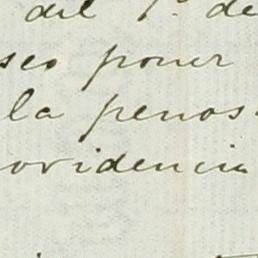 del 1º de
seo poner
la penos
ovidencia